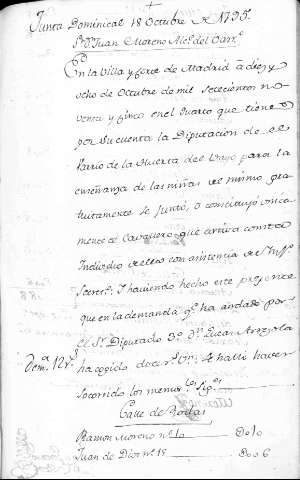 Junta Dominical 18 Octubre de 1795.
Dn Juan Moreno Alce. del Barr.o
En la Villa y Corte de Madrid a diez y
ocho de Octubre de mil setecientos no-
venta y cinco en el quarto que tiene
por su cuenta la Diputacion de este
Barrio de la Huerta del Vayo para la
enseñanza de las niñas del mismo gra-
tuitamente se juntó, o constituyó unica
mente el Cavallero que arriva consta
Individuo de ella con asistencia de mi Inff.o
Secret.o. Y haviendo hecho este presente
que en la demanda q.e ha andado por
el Sr. Diputado 3.o Dn. Lucas
Dem.a 12 r.s ha cogido doce r.s Vn. y halli haver
socorrido los menest.s sig.es
Calle de Rodas
Ramon Moreno n.o 10 Do10
Juan de Dios n.o 15 Do06